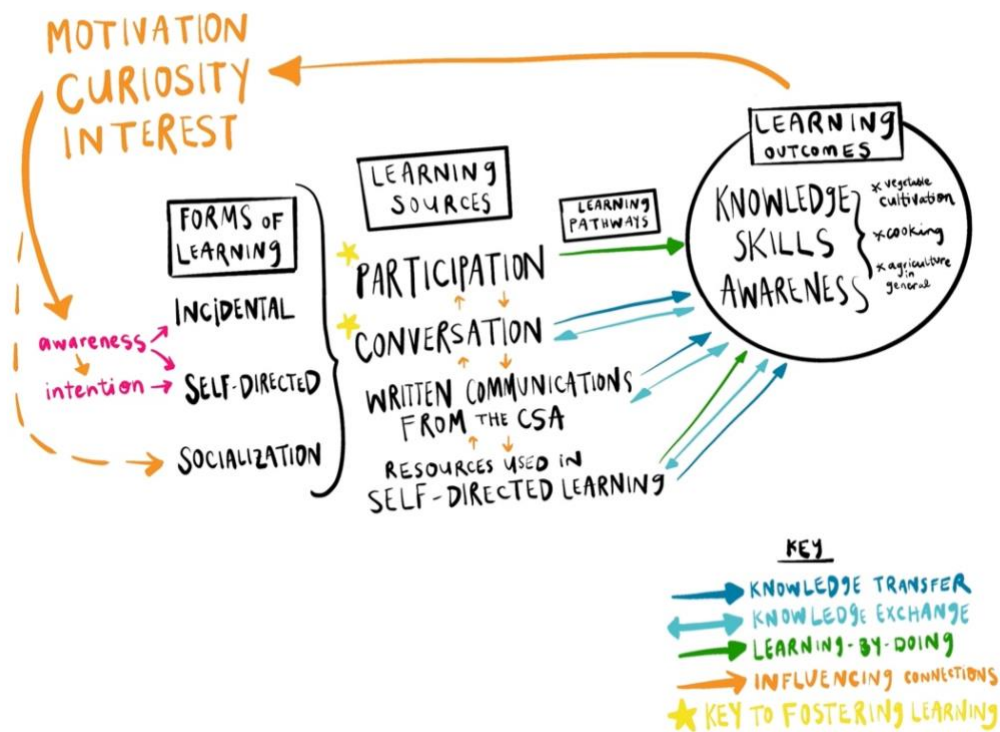 MOTIVATION
CURIOSITY
INTEREST
FORMS OF
LEARNING
INCIDENTAL
awareness
intention
SELF-DIRECTED
SOCIALIZATION
LEARNING
SOURCES
PARTICIPATION
CONVERSATION
WRITTEN COMMUNICATIONS
FROM THE CSA
RESOURCES USED IN
SELF-DIRECTED LEARNING
LEARNING
PATHWAYS
LEARNING
OUTCOMES
KNOWLEDGE
SKILLS
AWARENESS
* vegetable
cultivation
* cooking
* agriculture
in
general
KEY
KNOWLEDGE TRANSFER
KNOWLEDGE EXCHANGE
LEARNING-BY-DOING
INFLUENCING CONNECTIONS
KEY TO FOSTERING LEARNING